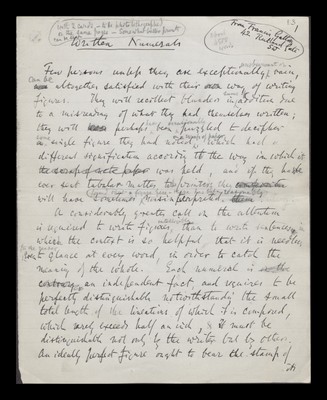 with 2 cards — to be photolithographed
on the same page — somewhat
From Francis Galton
42 Rutland Gate
SW
Written Numerals
Few persons unless they are exceptionally vain,
can be altogether satisfied with their way of writing
figures. They will recollect blunders in addition due
to a misreading of what they had themselves written;
they will perhaps, been puzzled to decipher
a single figure they had noted, which had a
different signification according to the way in which
was held, and if they have
ever sent tabular matter to printers the
will have sometimes misinterpreted
A considerably greater call on the attention
is required to write figures, than to write sentences, in
which the context is so helpful, that it is needless
to glance at every word, in order to catch the
meaning of the whole. Each numeral is
an independent fact, and requires to be
perfectly distinguishable notwithstanding the small
total length of the lineations of which it is composed,
which rarely exceeds half an inch. It must be
distinguishable not only by the writer but by others.
An ideally perfect figure ought to bear the stamp of